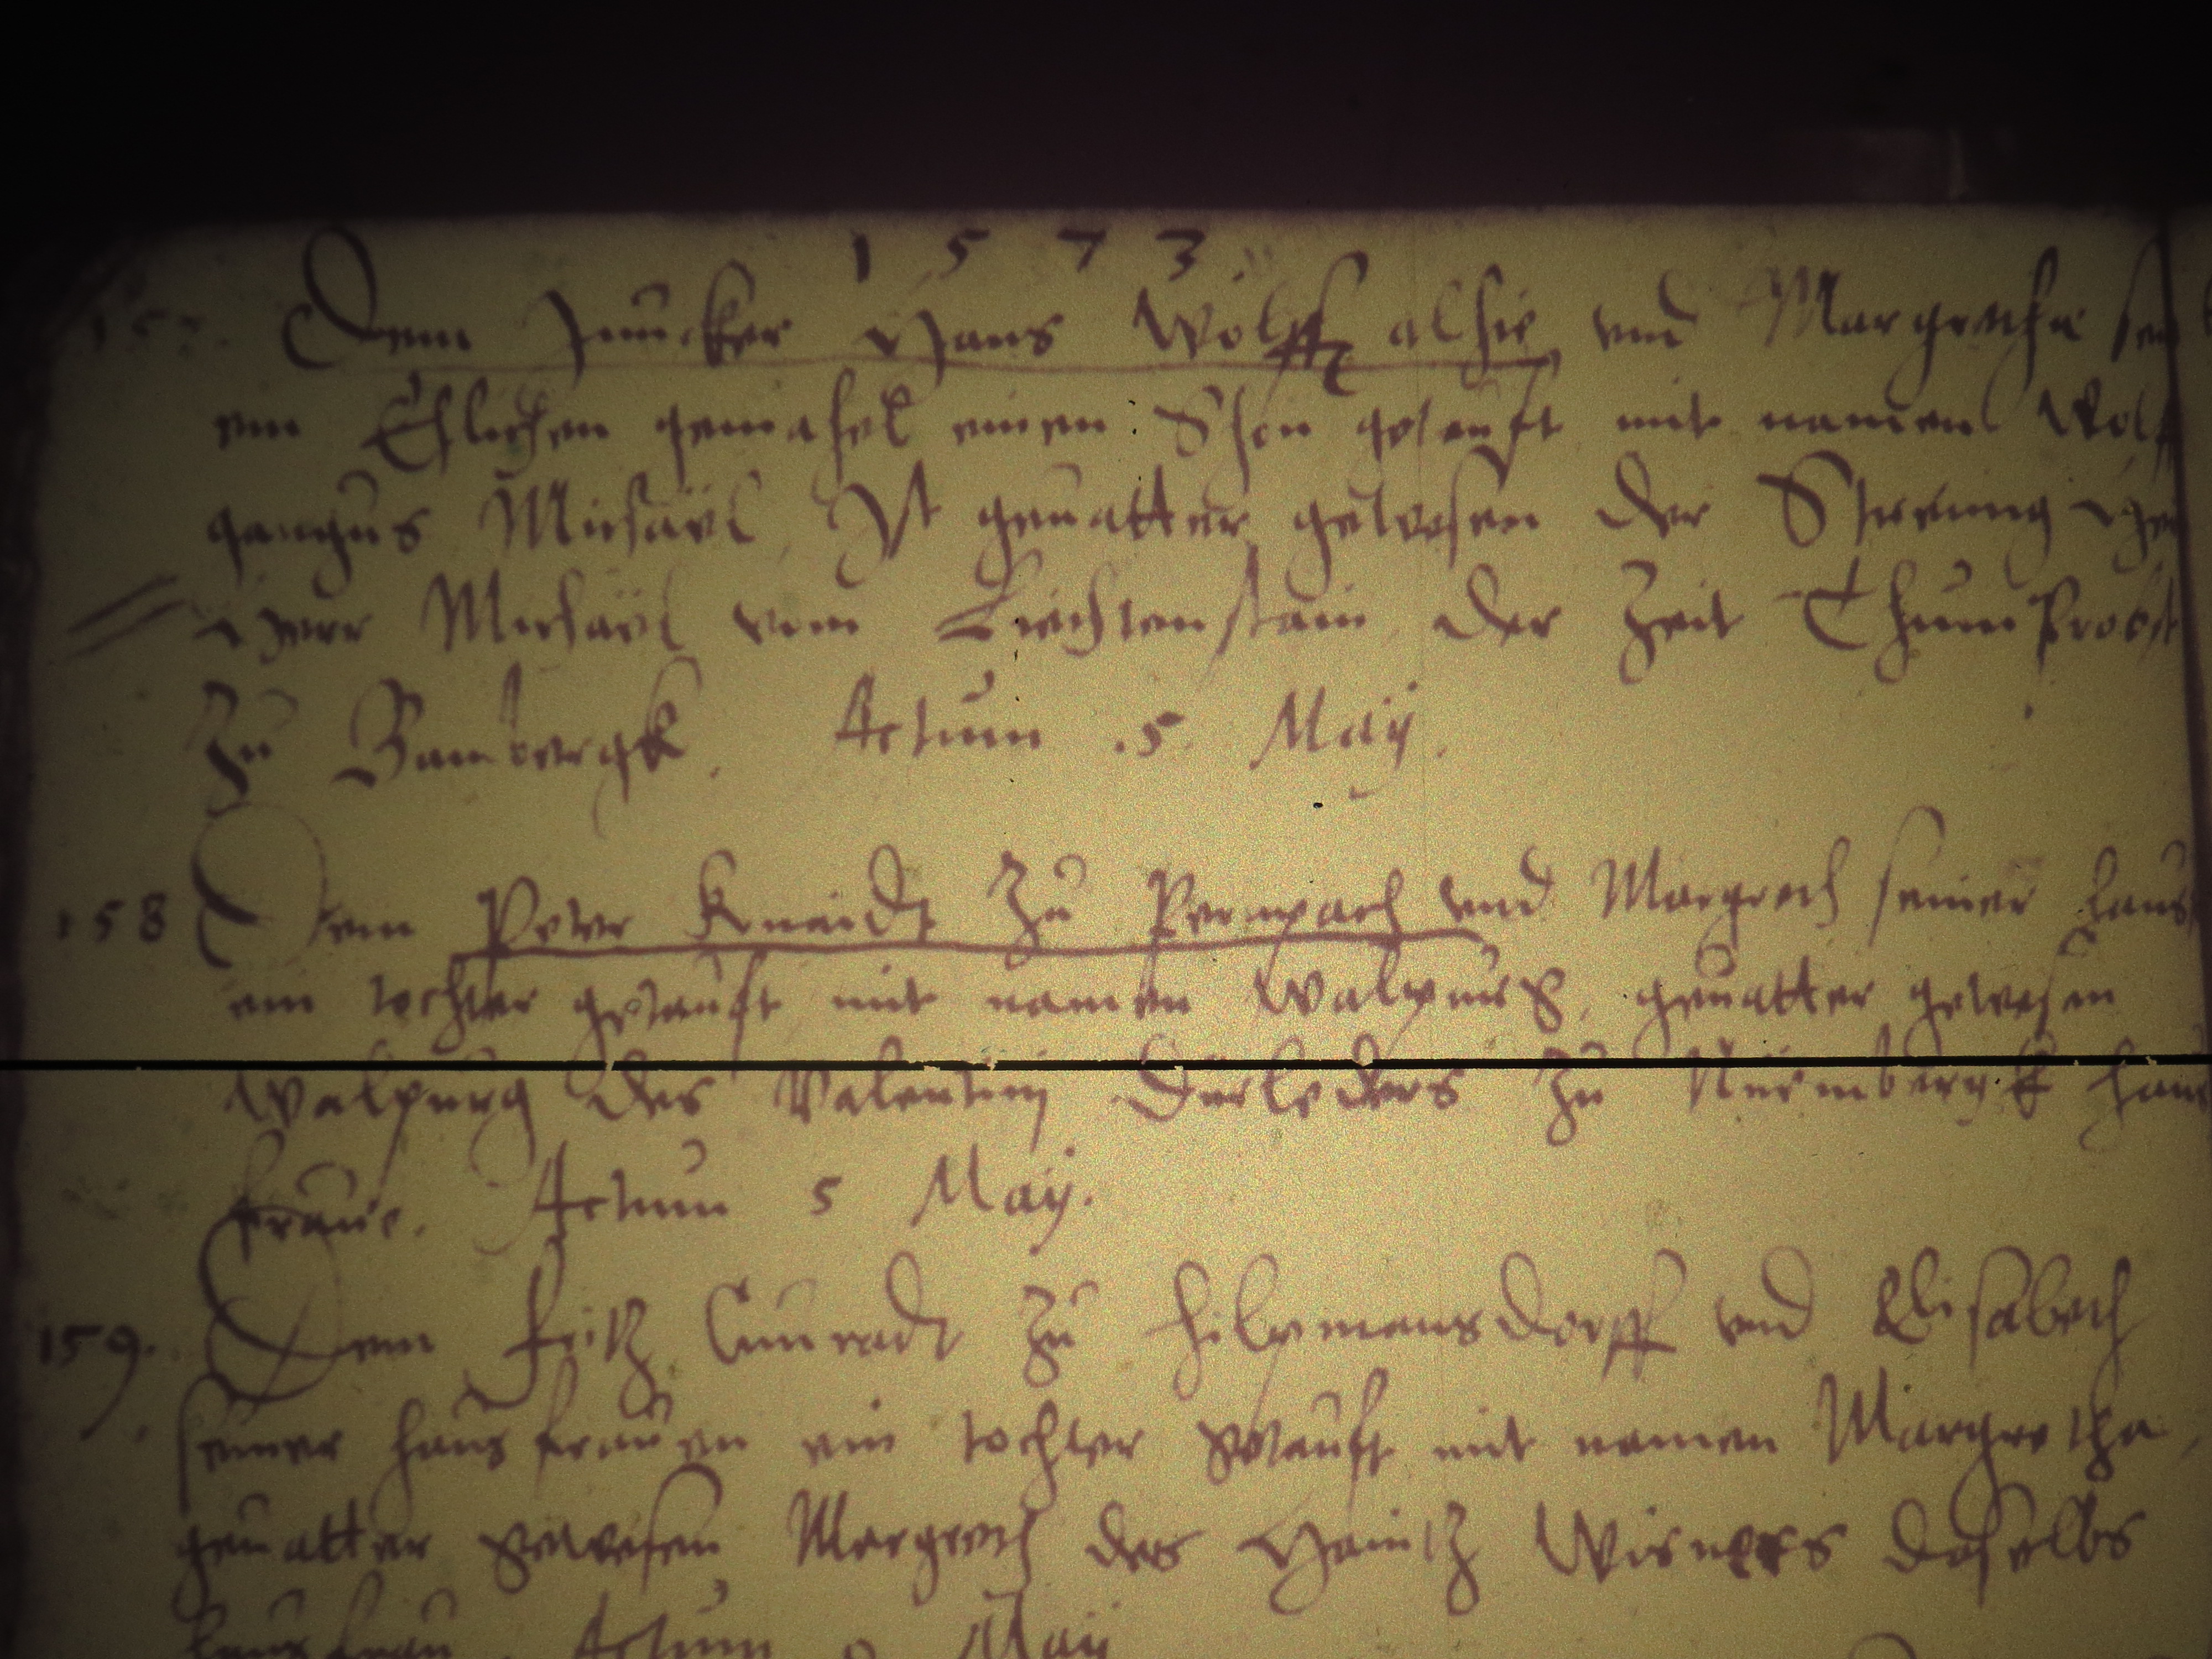 1573.
157. Dem Juncker Hans Wolff alhie vnd Margretha sei
nen Ehlichen gemahel einen Shon getaufft mit namen Wolf
gangus Michaël, Ist geuatter gewesen der
Herr Michaël vom Liechtenstain der Zeit ThumProbst
Zu Bambergk. Actum .5. Maij.
158 Dem Peter Knaidt Zu und Margreth seiner haus
ein tochter getaufft mit namen Walpurg, geuatter gewesen
Walpurg des Valentin zu Nürmbergk haus
fraue. Actum 5 Maij.
159. Dem Fritz Cunradt zu Hilpmansdorff vnd Elisabeth
seiner hausfrauen ein tochter getaufft mit namen Margretha,
geuatter gewesen Margreth des Haintz Wisners daselbs
hausfrau. Actum Maij